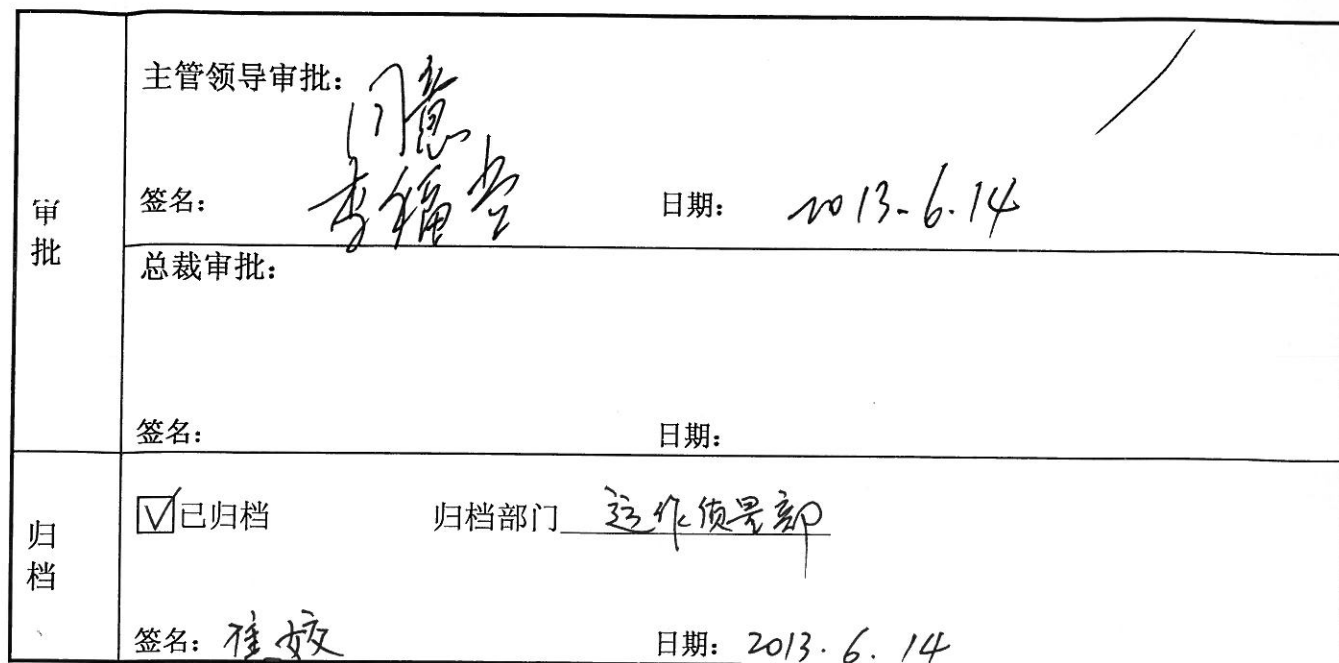 审批
主管领导审批：同意
签名：李福堂 日期：2013.6.14
总裁审批：
签名： 日期：
归档
已归档 归档部门 运作质量部
签名： 日期：2013.6.14